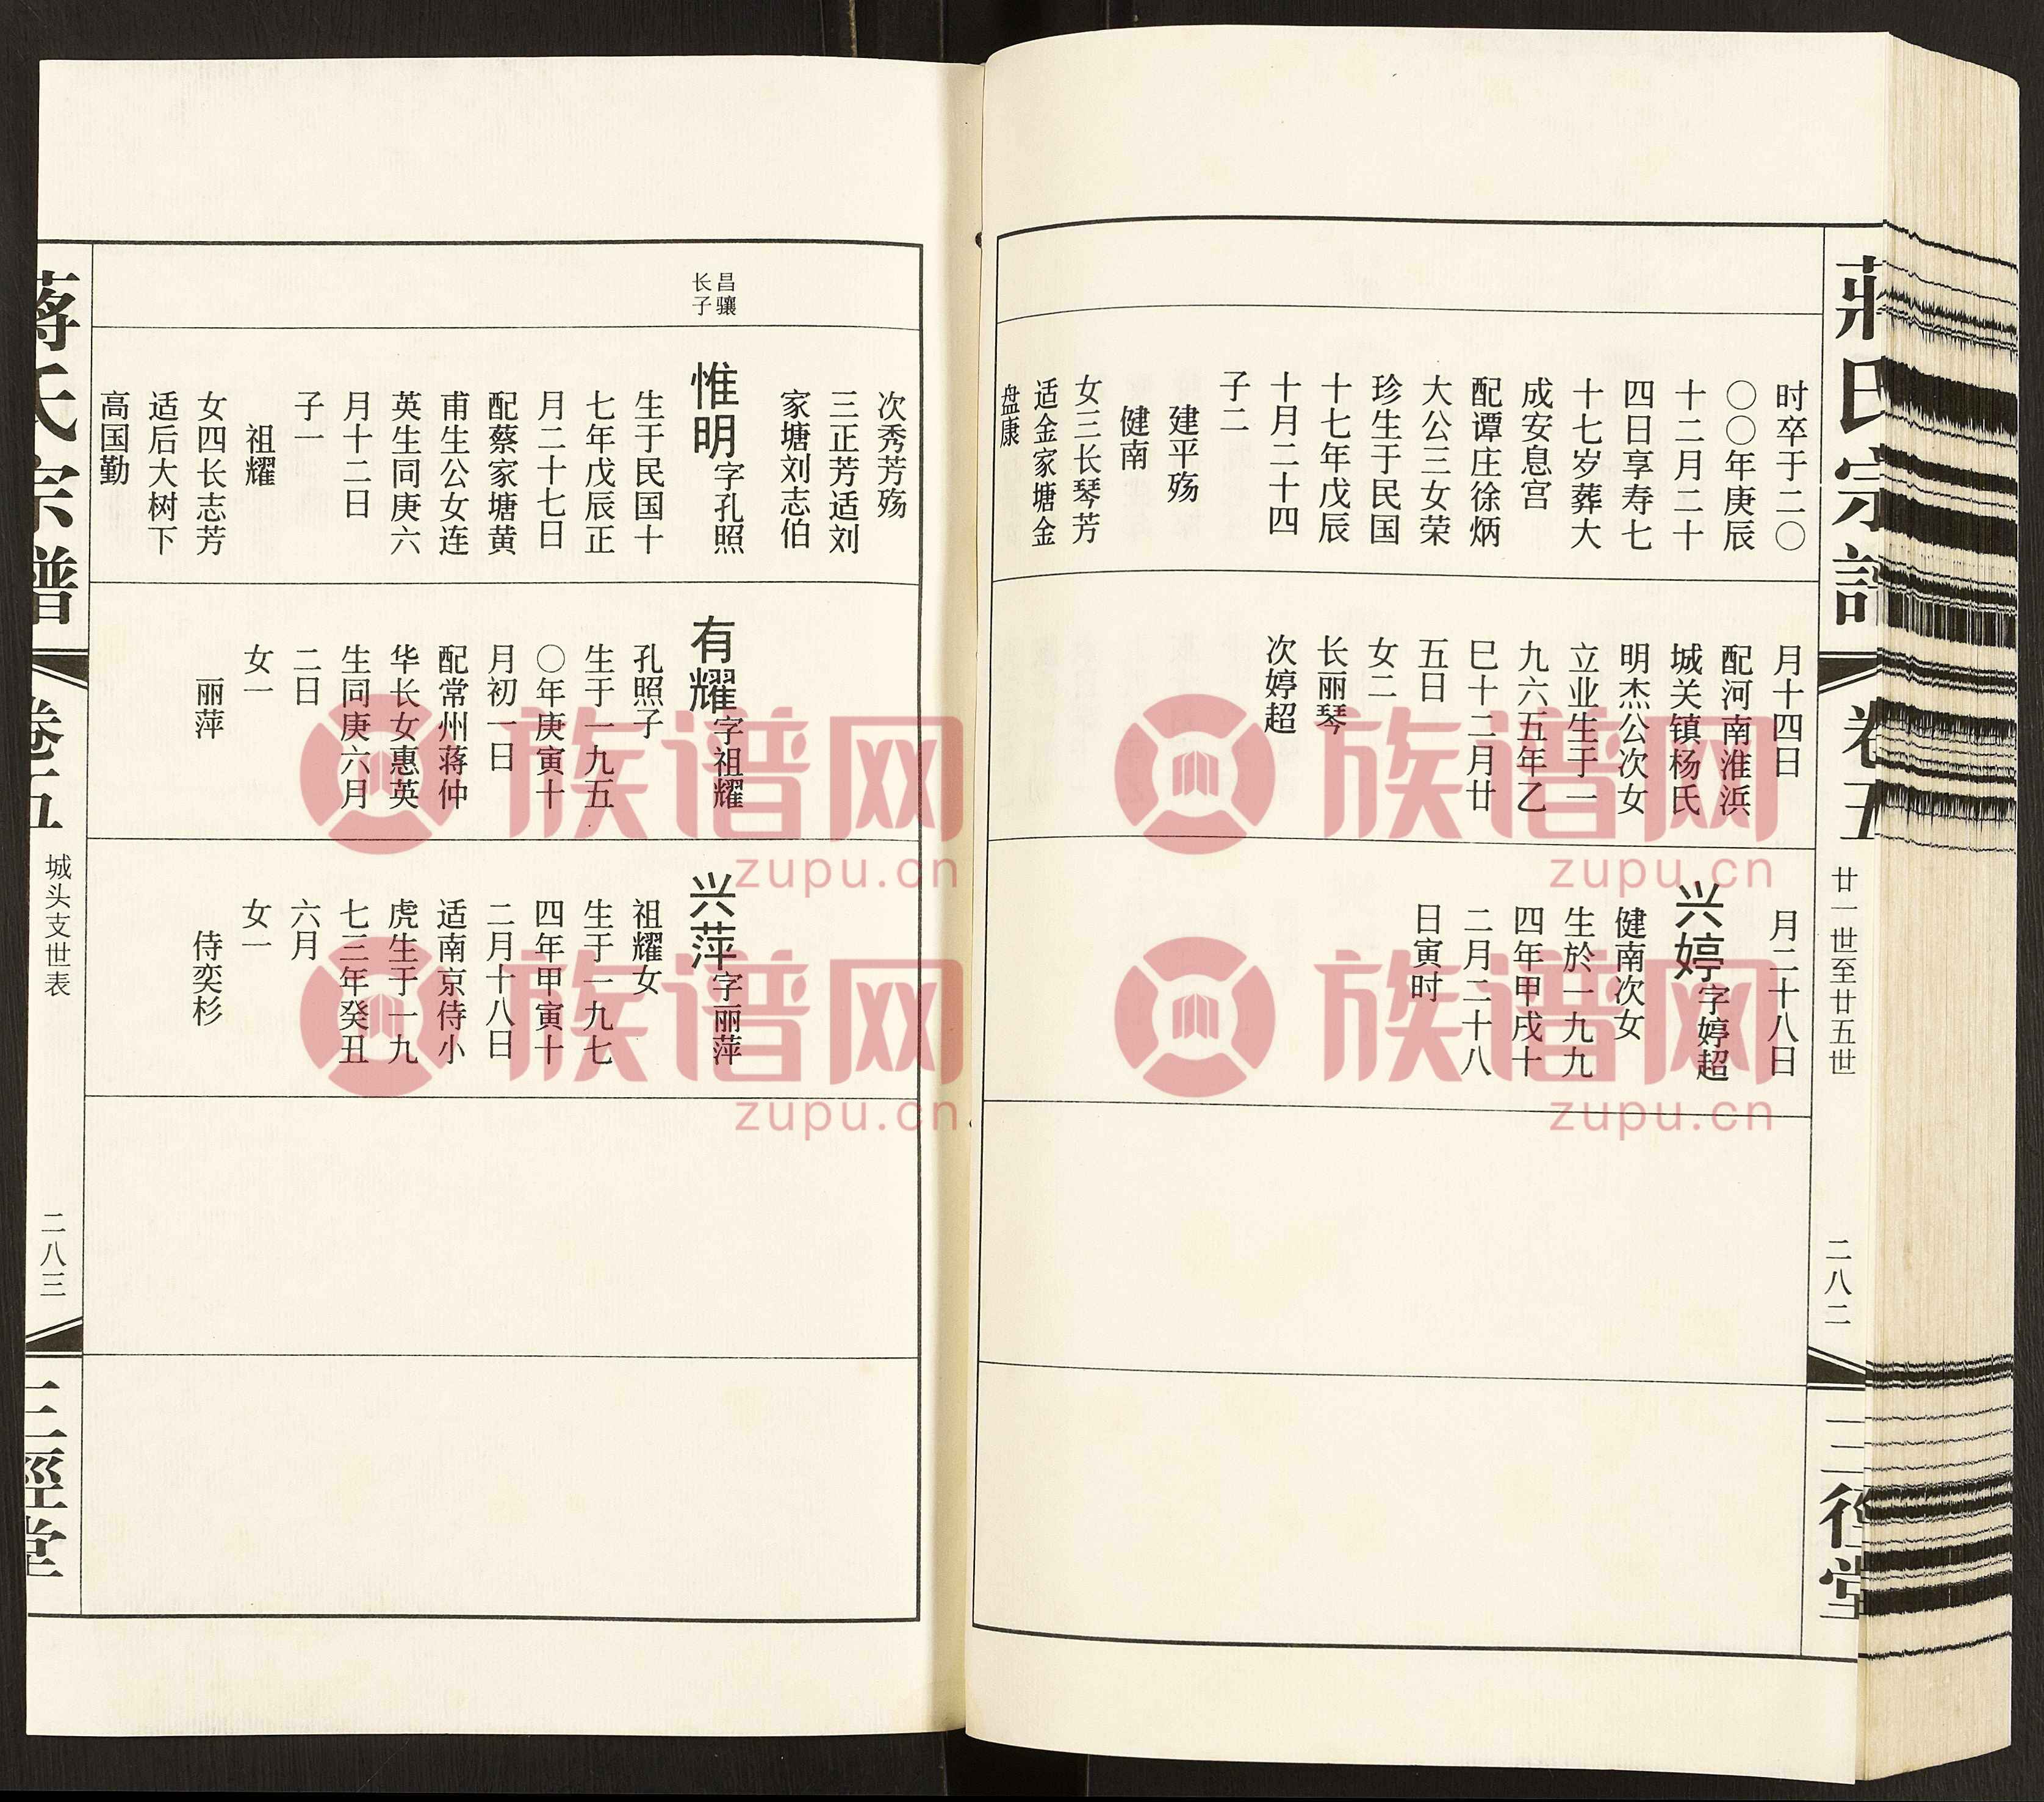 蔣氏宗譜
卷五
廿一世至廿五世
二八二
三徑堂
时卒于二〇
〇〇年庚辰
十二月二十
四日享寿七
十七岁葬大
成安息宫
配谭庄徐炳
大公三女荣
珍生于民国
十七年戊辰
十月二十四
子二
建平殇
健南
女三长琴芳
适金家塘金
盘康
月十四日
配河南淮浜
城关镇杨氏
明杰公次女
立业生于一
九六五年乙
巳十二月廿
五日
女二
长丽琴
次婷超
月二十八日
兴婷字婷超
健南次女
生於一九九
四年甲戌十
二月二十八
日寅时
次秀芳殇
三正芳适刘
家塘刘志伯
昌骧
长子
惟明字孔照
生于民国十
七年戊辰正
月二十七日
配蔡家塘黄
甫生公女连
英生同庚六
月十二日
子一
祖耀
女四长志芳
适后大树下
高国勤
有耀字祖耀
孔照子
生于一九五
〇年庚寅十
月初一日
配常州蒋仲
华长女惠英
生同庚六月
二日
女一
丽萍
兴萍字丽萍
祖耀女
生于一九七
四年甲寅十
二月十八日
适南京侍小
虎生于一九
七三年癸丑
六月
女一
侍奕杉
蔣氏宗譜
卷五
城头支世表
二八三
三徑堂
族谱网
zupu.cn
族谱网
zupu.cn
族谱网
zupu.cn
族谱网
zupu.cn